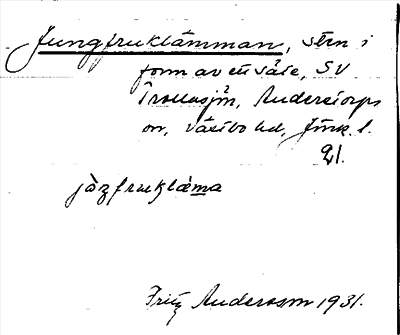 Jungfruklämman, sten i
form av en såte, SV
Trollasjön, Anderstorps
sn, Västbo hd, Jönk. l.
21.
jòŋfruklä̀ma
Fritz Andersson 1931.